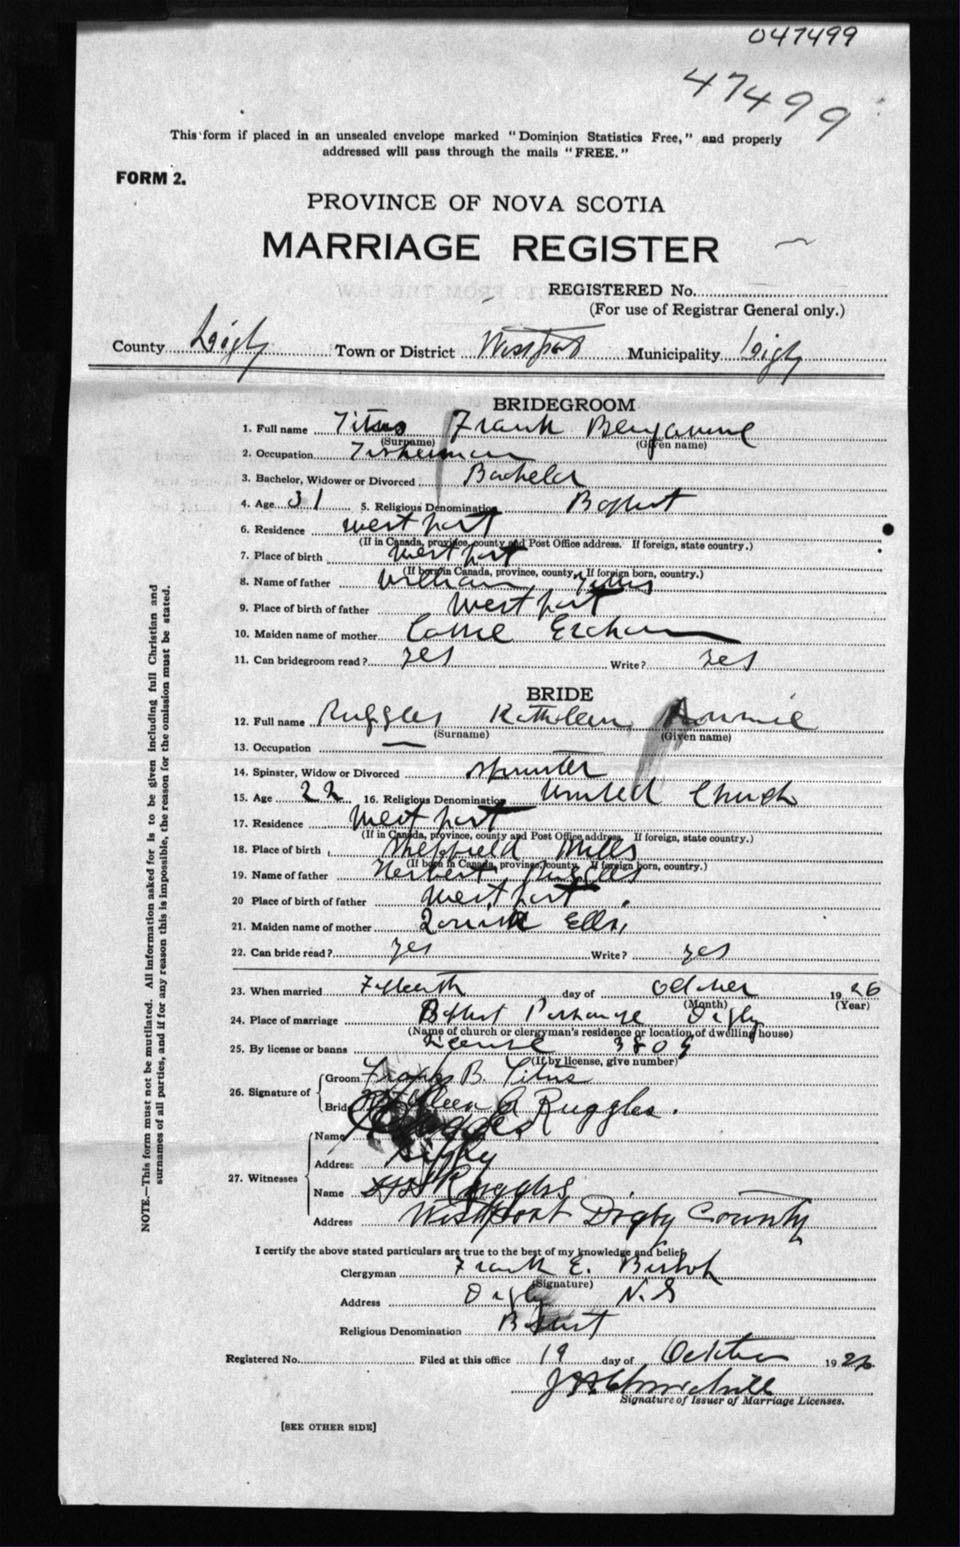 047499
47499
This form if placed in an unsealed envelope marked "Dominion Statistics Free," and properly
addressed will pass through the mails "FREE."
FORM 2.
PROVINCE OF NOVA SCOTIA
MARRIAGE REGISTER
REGISTERED No.
(For use of Registrar General only.)
County Digby Town or District Westport Municipality Digby
BRIDEGROOM
1. Full name Titus Frank Benjamine
(Surname) (Given name)
2. Occupation Fisherman
3. Bachelor, Widower or Divorced Bachelor
4. Age 31 5. Religious Denomination Baptist
6. Residence West port
(If in Canada, province, county and Post Office address. If foreign, state country.)
7. Place of birth West port
(If born in Canada, province, county, If foreign born, country.)
8. Name of father William Titus
9. Place of birth of father West port
10. Maiden name of mother
11. Can bridegroom read? yes Write? yes
BRIDE
12. Full name Ruggles Kathleen Annie
(Surname) (Given name)
13. Occupation —
14. Spinster, Widow or Divorced Spinster
15. Age 22 16. Religious Denomination United Church
17. Residence West port
(If in Canada, province, county and Post Office address. If foreign, state country.)
18. Place of birth Sheffield Mills
(If born in Canada, province, county. If foreign born, country.)
19. Name of father Herbert Ruggles
20 Place of birth of father West port
21. Maiden name of mother Ells
22. Can bride read? yes Write? yes
23. When married Fifteenth day of October 1926
(Month) (Year)
24. Place of marriage Baptist Parsonage Digby
(Name of church or clergyman's residence or location of dwelling house)
25. By license or banns License 3809
(If by license, give number)
26. Signature of Groom Frank B. Titus
Bride Kathleen A Ruggles.
27. Witnesses
Name
Address Digby
Name Ruggles
Address Westport Digby County
I certify the above stated particulars are true to the best of my knowledge and belief.
Clergyman Frank E. Bishop
(Signature)
Address Digby N.S
Religious Denomination Baptist
Registered No. Filed at this office 19 day of October 1926
Churchill
Signature of Issuer of Marriage Licenses.
[SEE OTHER SIDE]
NOTE.—This form must not be mutilated. All information asked for is to be given including full Christian and
surnames of all parties, and if for any reason this is impossible, the reason for the omission must be stated.